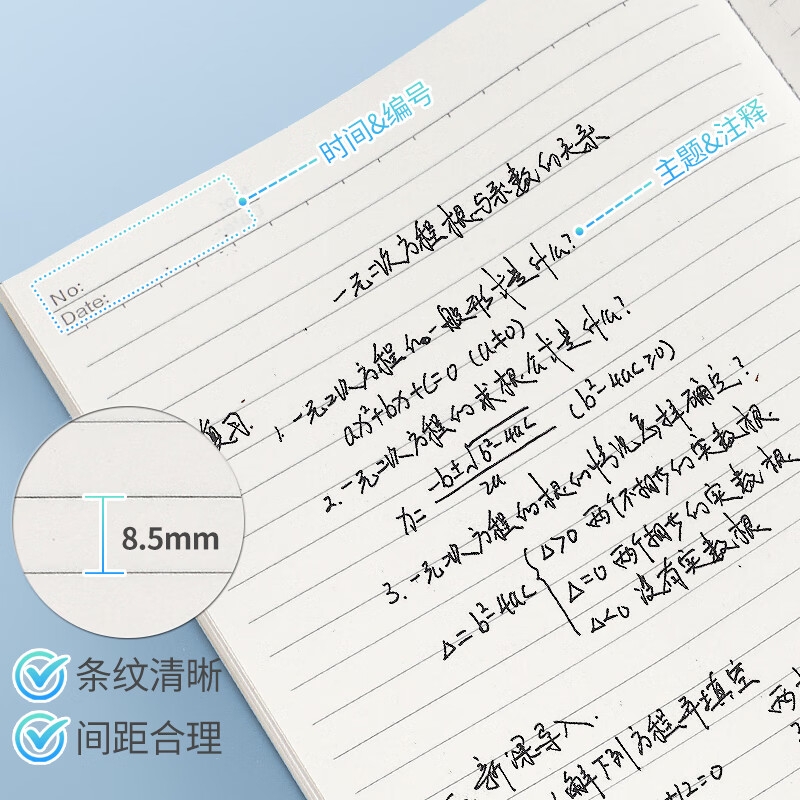 时间&编号
主题&注释
No:
Date:
一元二次方程根与系数的关系
复习. 1. 一元二次方程的一般形式是什么?
ax²+bx+c=0 (a≠0)
2. 一元二次方程的求根公式是什么?
x= -b±√b²-4ac / 2a (b²-4ac≥0)
3. 一元二次方程的根的情况怎样确定?
Δ=b²-4ac { Δ>0 两个不相等的实数根
Δ=0 两个相等的实数根
Δ<0 没有实数根
新课导入.
解下列方程并填空
+12=0
两
8.5mm
条纹清晰
间距合理